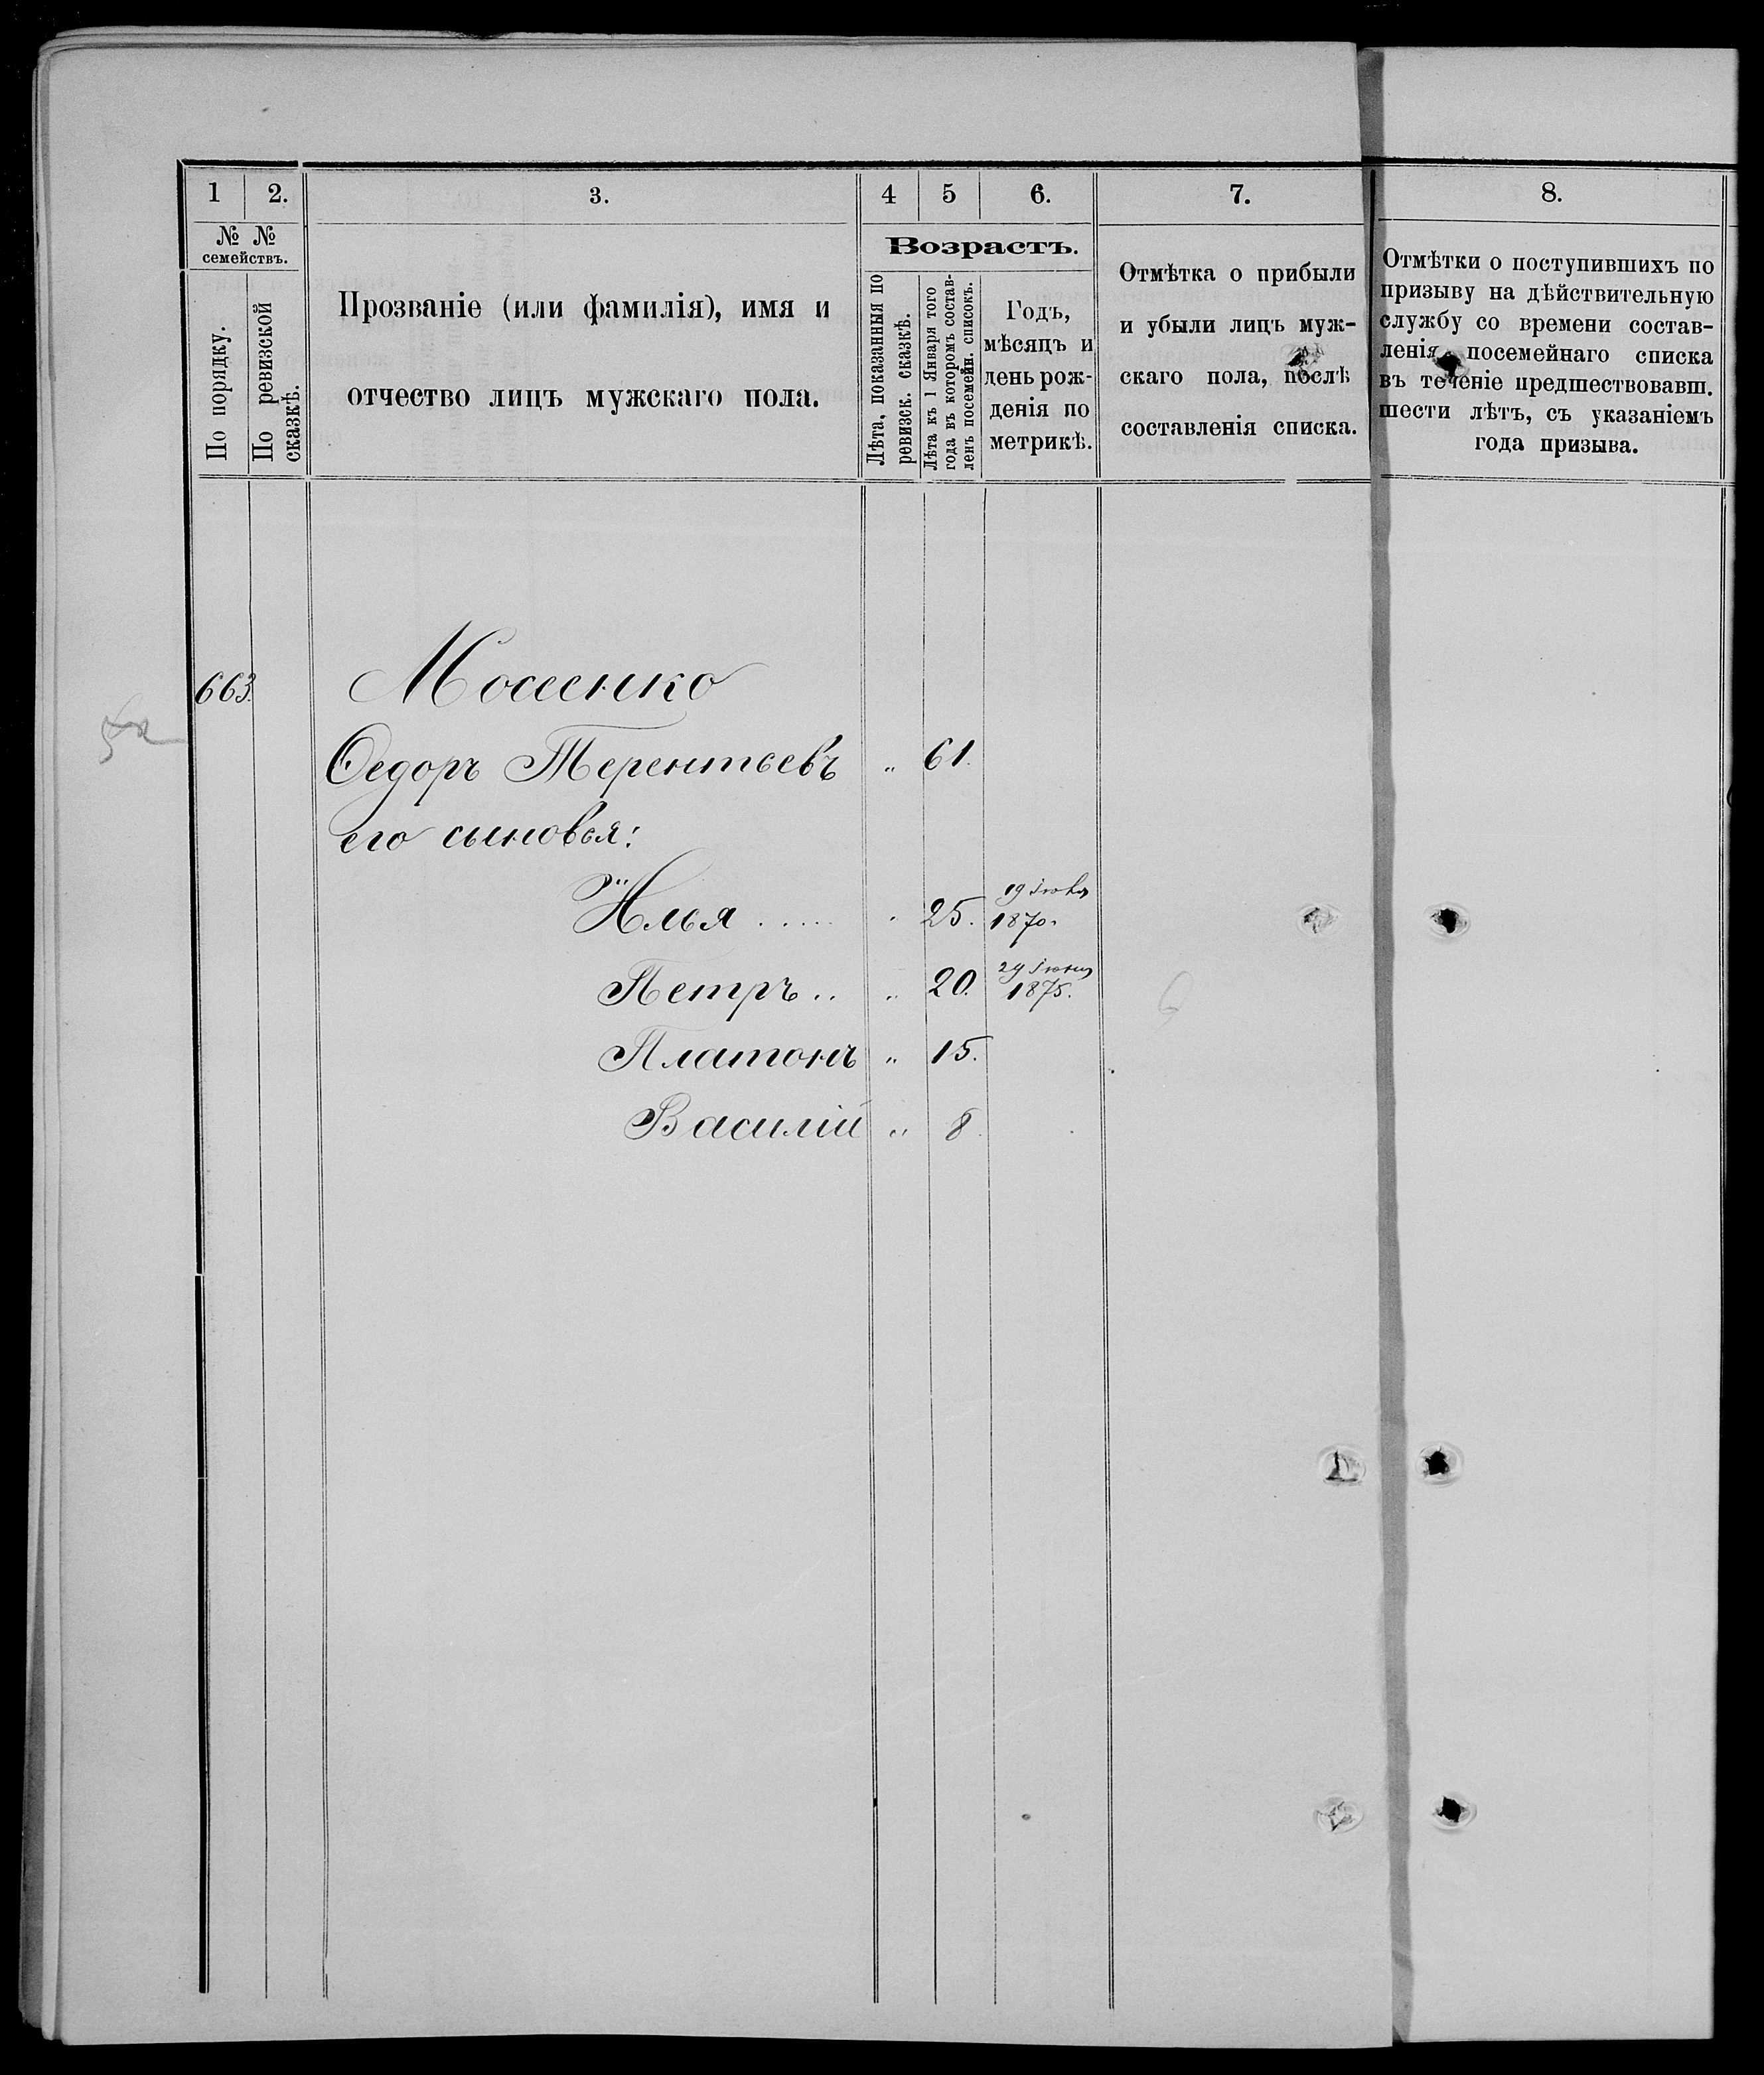 1 2. 3. 4 5 6. 7. 8.
№ №
семействъ.
По порядку.
По ревизской
сказкѣ.
Прозваніе (или фамилія), имя и
отчество лицъ мужскаго пола.
Возрастъ.
Лѣта, показанныя по
ревизск. сказкѣ.
Лѣта къ 1 Января того
года въ которомъ состав-
ленъ посемейн. списокъ.
Годъ,
мѣсяцъ и
день рож-
денія по
метрикѣ.
Отмѣтка о прибыли
и убыли лицъ муж-
скаго пола, послѣ
составленія списка.
Отмѣтки о поступившихъ по
призыву на дѣйствительную
службу со времени состав-
ленія посемейнаго списка
въ теченіе предшествовавш.
шести лѣтъ, съ указаніемъ
года призыва.
663. Мосеенко
Ѳедоръ Терентьевъ " 61.
его сыновья:
19
Илья . . . . . " 25. 1870.
29 Іюня
Петръ .. " 20. 1875.
Платонъ " 15.
Василій " 8.